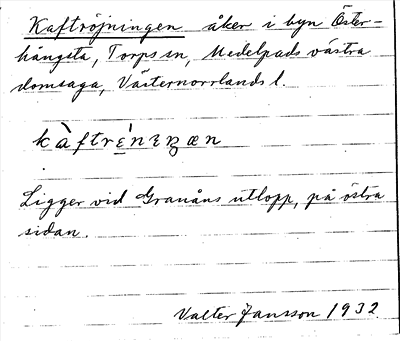 Kaftröjningen åker i byn Öster-
hångsta, Torps sn, Medelpads västra
domsaga, Västernorrlands l.
Ligger vid Granåns utlopp, på östra
sidan.
Valter Jansson 1932